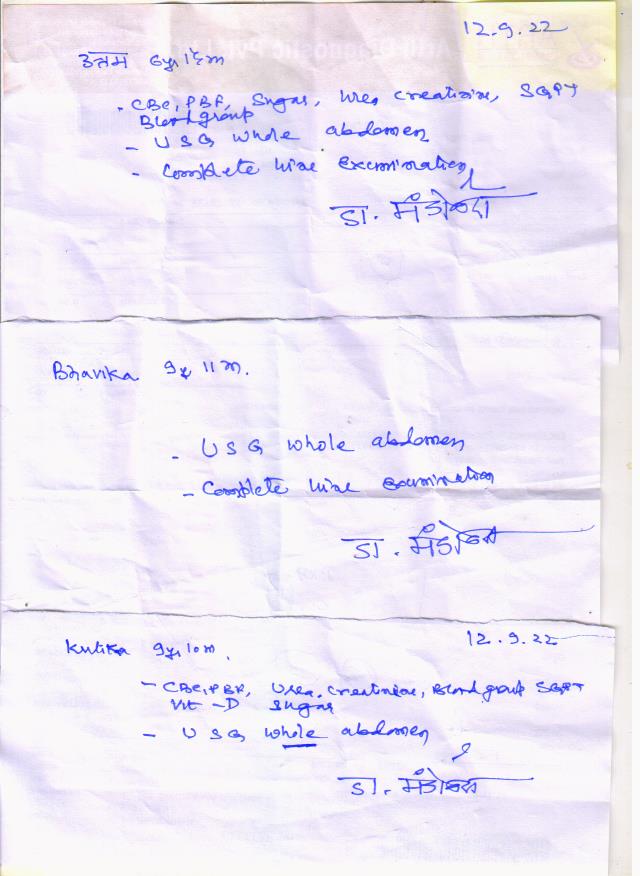 12.9.22
उत्तम 6yr
- CBC, PBF, Sugar, Urea creatinine, SGPT
Blood group
- USG whole abdomen
- Complete Urine Examination
डा.
Bhavika 9yr 11m.
- USG whole abdomen
- Complete Urine Examination
डा.
12.9.22
Kutika 9yr 10m.
- CBC, PBF, Urea, creatinine, Blood group SGPT
Vit-D Sugar
- USG whole abdomen
डा.